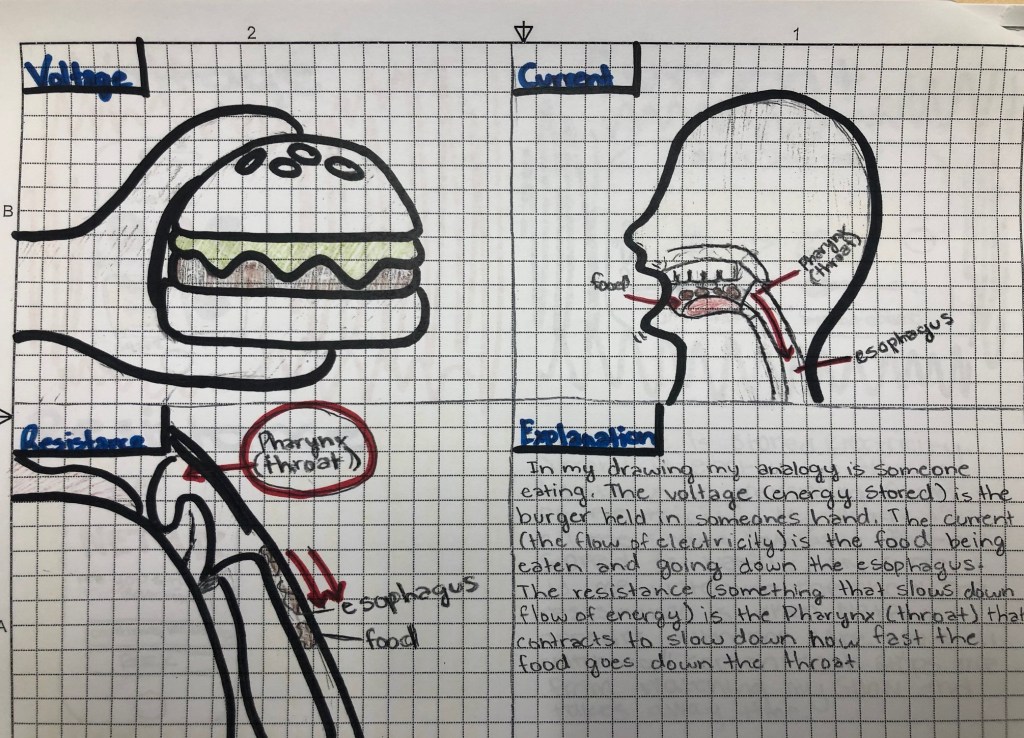 2
1
B
A
Voltage
Current
food
Pharynx
(throat)
esophagus
Resistance
Pharynx
(throat))
esophagus
food
Explanation
In my drawing my analogy is someone
eating. The voltage (energy stored) is the
burger held in someones hand. The current
(the flow of electricity) is the food being
eaten and going down the esophagus.
The resistance (something that slows down
flow of energy) is the Pharynx (throat) that
contracts to slow down how fast the
food goes down the throat